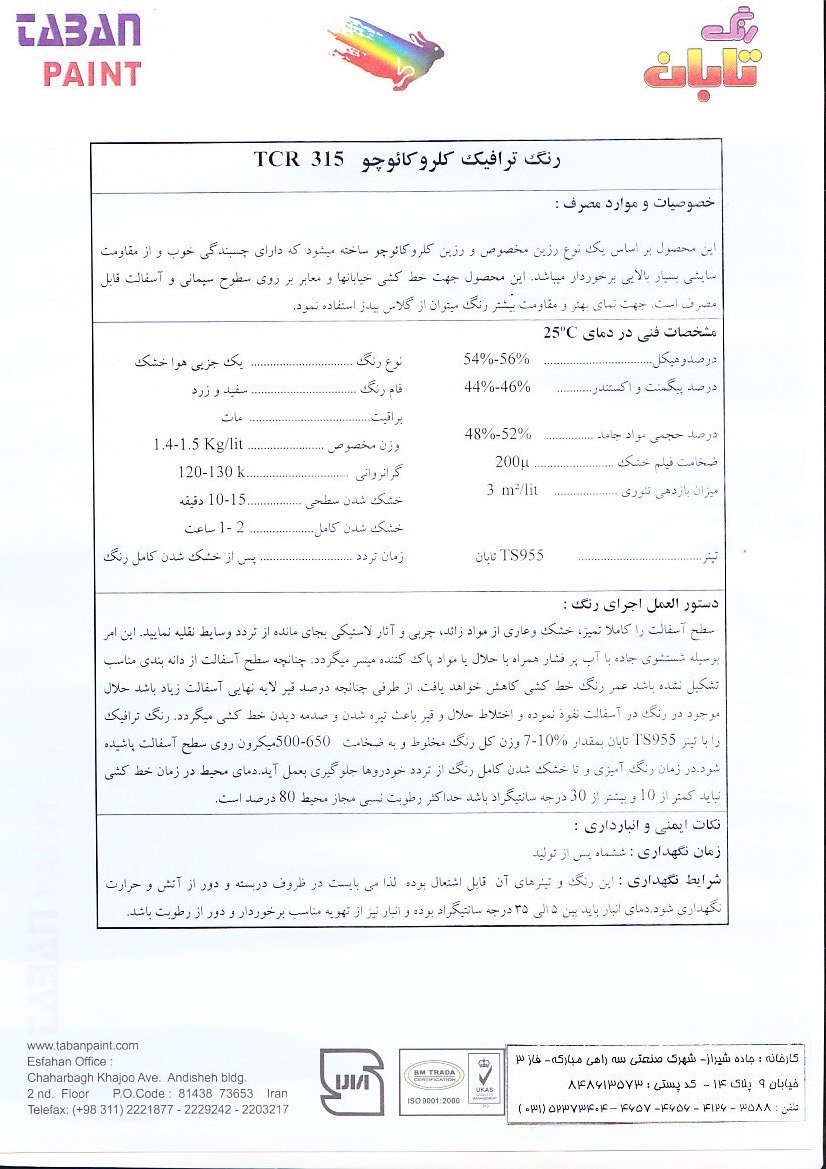 TABAN
PAINT
رنگ
تابان
رنگ ترافیک کلروکائوچو TCR 315
خصوصیات و موارد مصرف :
این محصول بر اساس یک نوع رزین مخصوص و رزین کلروکائوچو ساخته میشود که دارای چسبندگی خوب و از مقاومت
سایشی بسیار بالایی برخوردار میباشد. این محصول جهت خط کشی خیابانها و معابر بر روی سطوح سیمانی و آسفالت قابل
مصرف است. جهت نمای بهتر و مقاومت بیشتر رنگ میتوان از گلاس بیدز استفاده نمود.
مشخصات فنی در دمای 25°C
درصدوهیکل............................... 54%-56%
نوع رنگ ............................. یک جزیی هوا خشک
درصد پیگمنت و اکستندر.......... 44%-46%
فام رنگ .............................. سفید و زرد
براقیت................................... مات
درصد حجمی مواد جامد .............. 48%-52%
وزن مخصوص ...................... 1.4-1.5 Kg/lit
ضخامت فیلم خشک ....................... 200µ
گرانروانی .............................120-130 k
میزان بازدهی تئوری .................. 3 m²/lit
خشک شدن سطحی ...............10-15 دقیقه
خشک شدن کامل................... 2 -1 ساعت
تینر................................... TS955 تابان
زمان تردد .......................... پس از خشک شدن کامل رنگ
دستور العمل اجرای رنگ :
سطح آسفالت را کاملا تمیز، خشک وعاری از مواد زائد، چربی و آثار لاستیکی بجای مانده از تردد وسایط نقلیه نمایید. این امر
بوسیله شستشوی جاده با آب پر فشار همراه با حلال یا مواد پاک کننده میسر میگردد. چنانچه سطح آسفالت از دانه بندی مناسب
تشکیل نشده باشد عمر رنگ خط کشی کاهش خواهد یافت. از طرفی چنانچه درصد قیر لایه نهایی آسفالت زیاد باشد حلال
موجود در رنگ در آسفالت نفوذ نموده و اختلاط حلال و قیر باعث تیره شدن و صدمه دیدن خط کشی میگردد. رنگ ترافیک
را با تینر TS955 تابان بمقدار 10%-7 وزن کل رنگ مخلوط و به ضخامت 650-500میکرون روی سطح آسفالت پاشیده
شود.در زمان رنگ آمیزی و تا خشک شدن کامل رنگ از تردد خودروها جلوگیری بعمل آید.دمای محیط در زمان خط کشی
نباید کمتر از 10 و بیشتر از 30 درجه سانتیگراد باشد حداکثر رطوبت نسبی مجاز محیط 80 درصد است.
نکات ایمنی و انبارداری :
زمان نگهداری : ششماه پس از تولید
شرایط نگهداری : این رنگ و تینرهای آن قابل اشتعال بوده لذا می بایست در ظروف دربسته و دور از آتش و حرارت
نگهداری شود.دمای انبار باید بین ۵ الی ۳۵ درجه سانتیگراد بوده و انبار نیز از تهویه مناسب برخوردار و دور از رطوبت باشد.
www.tabanpaint.com
Esfahan Office :
Chaharbagh Khajoo Ave. Andisheh bldg.
2 nd. Floor P.O.Code : 81438 73653 Iran
Telefax: (+98 311) 2221877 - 2229242 - 2203217
BM TRADA
CERTIFICATION
ISO 9001:2000
UKAS
QUALITY
MANAGEMENT
کارخانه : جاده شیراز- شهرک صنعتی سه راهی مبارکه- فاز ۳
خیابان ۹ پلاک ۱۴ - کد پستی : ۸۴۸۶۱۳۵۷۳
تلفن : ۳۵۸۸ - ۴۱۲۶ - ۴۶۵۶ -۴۶۵۷ - ۵۲۳۷۳۴۰۴ (۰۳۱)